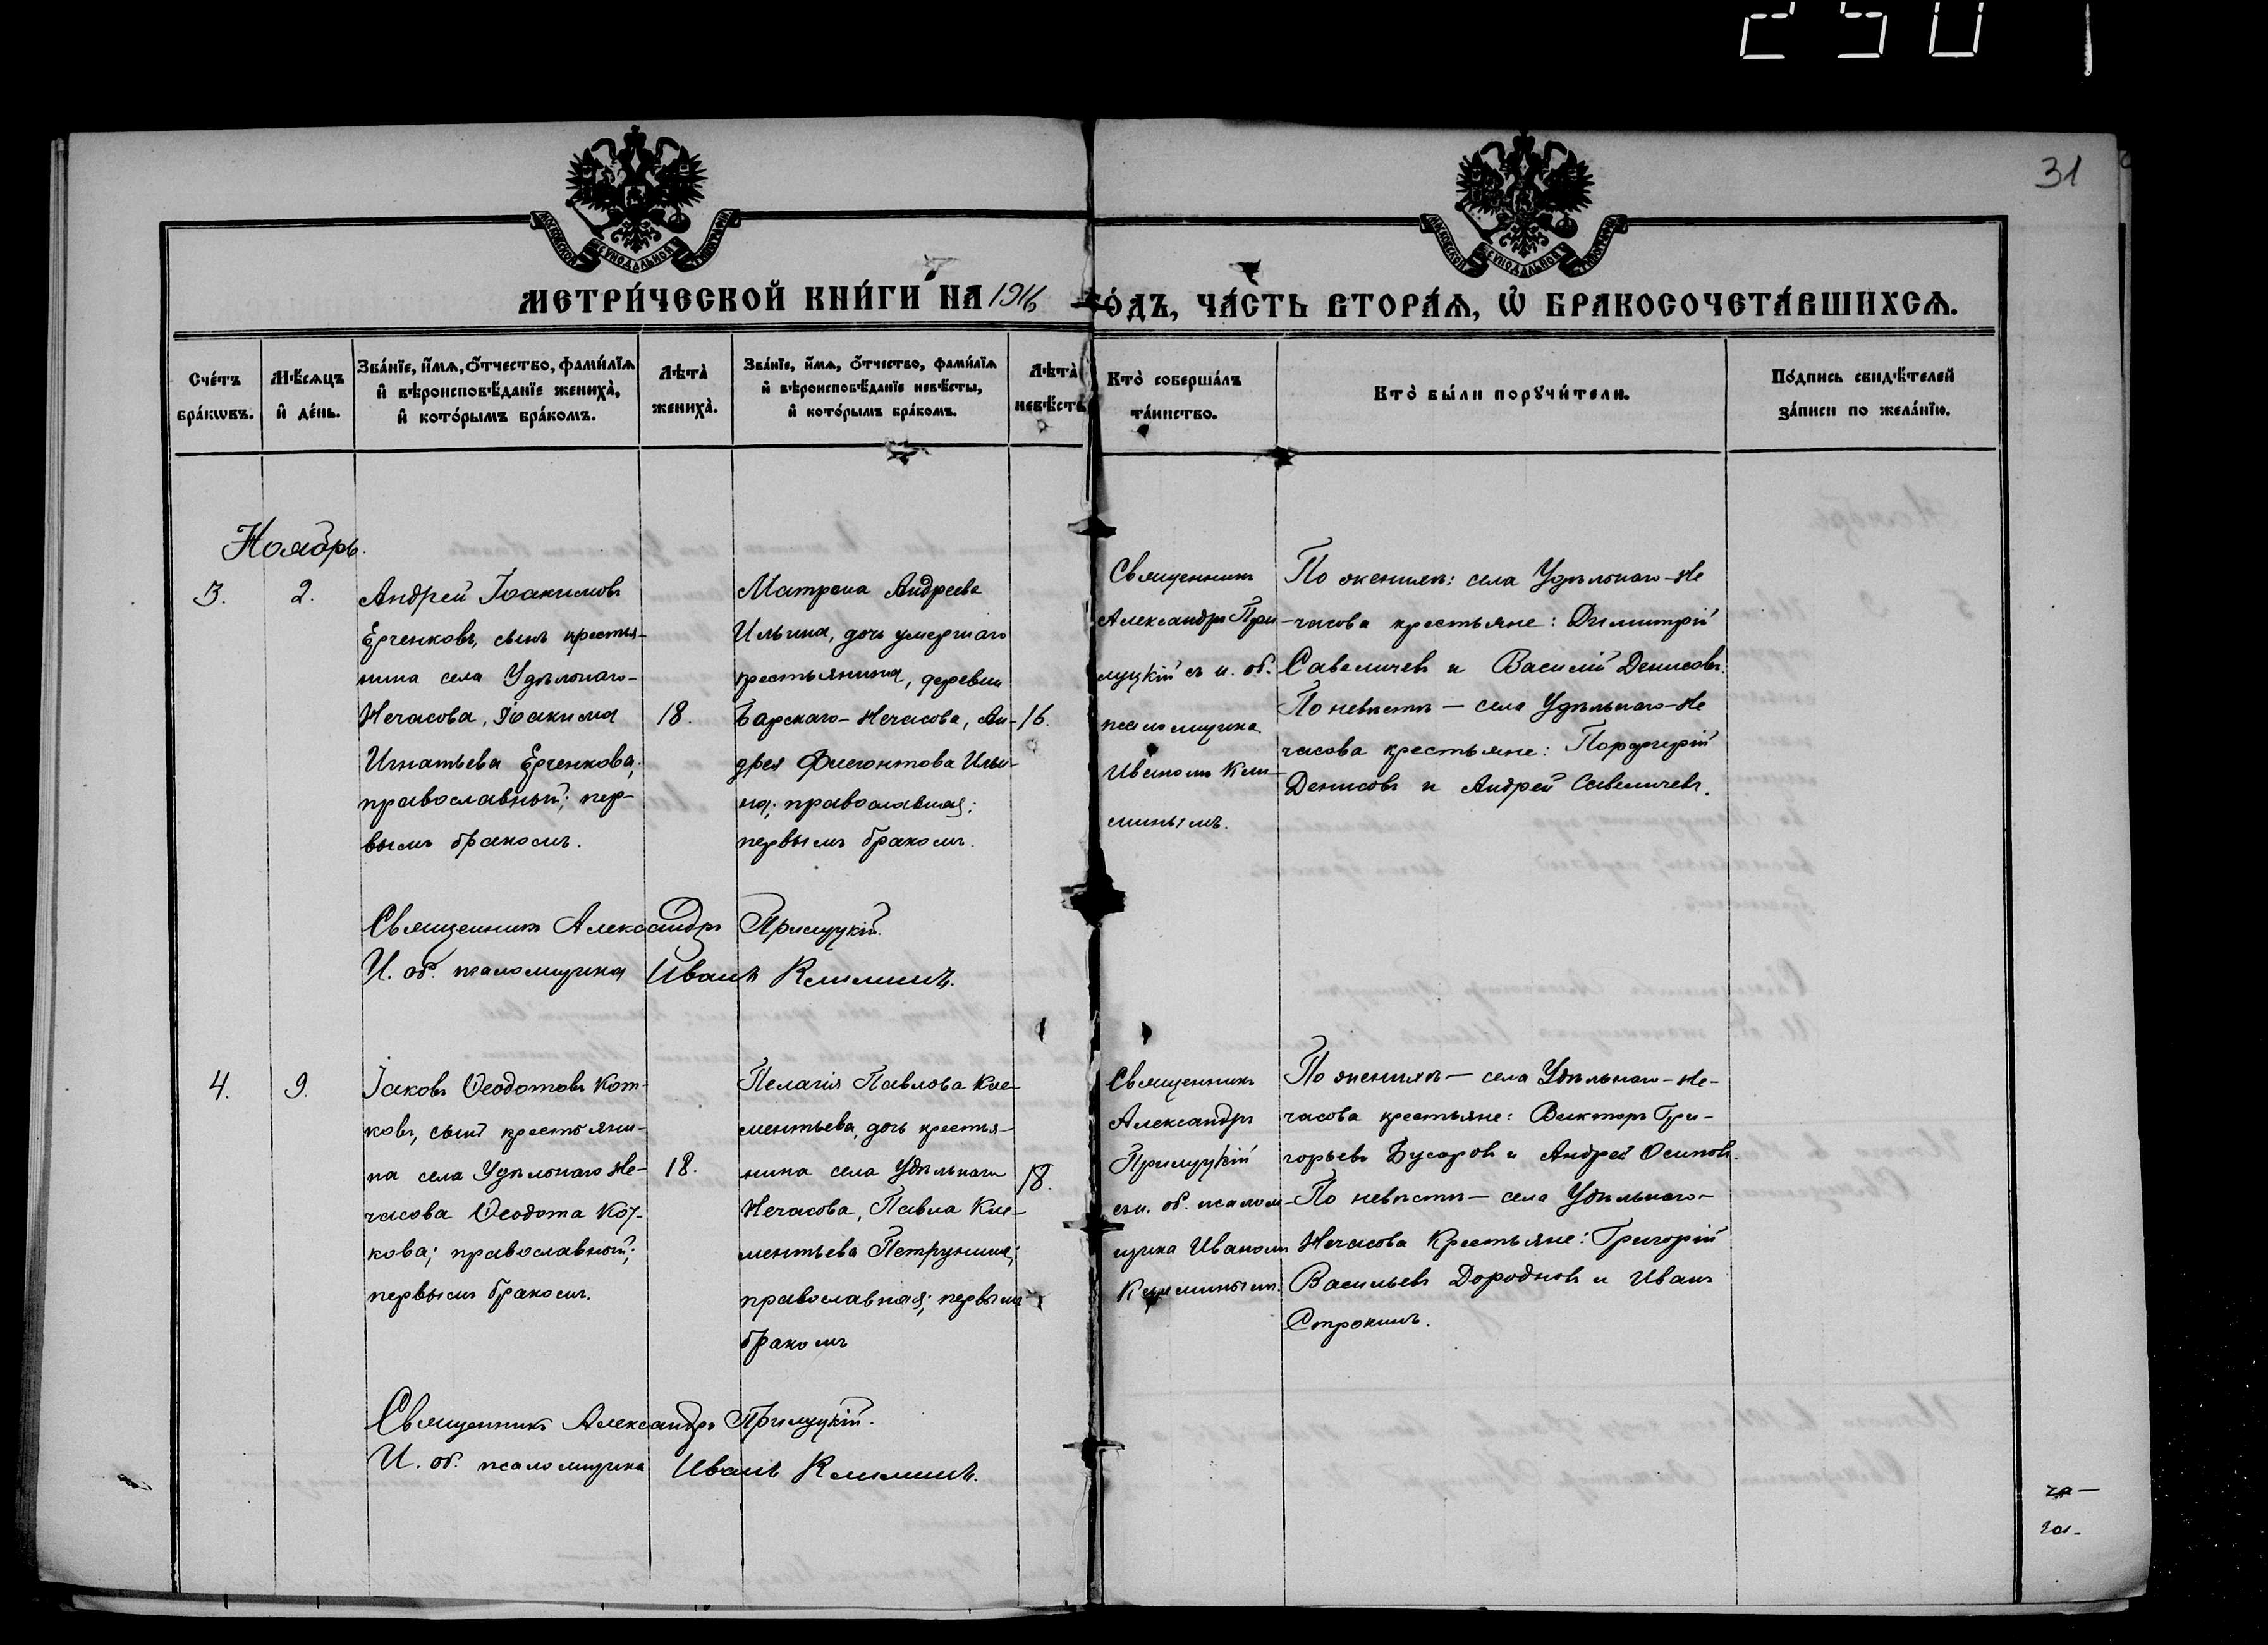 250
31
МЕТРИ́ЧЕСКОЙ КНИ́ГИ НА 1916 ГО́ДЪ, ЧА́СТЬ ВТОРА́Ѧ, Ѡ҆ БРАКОСОЧЕТА́ВШИХСѦ.
Сче́тъ бра́кѡвъ.
Мѣ́сяцъ и҆ де́нь.
Зва́нїе, и҆́мѧ, ѻ҆́тчество, фами́лїѧ
и҆ вѣроисповѣ́данїе жениха̀,
и҆ кото́рымъ бра́комъ.
Лѣта̀ жениха̀.
Зва́нїе, и҆́мѧ, ѻ҆́тчество, фами́лїѧ
и҆ вѣроисповѣ́данїе невѣ́сты,
и҆ кото́рымъ бра́комъ.
Лѣта̀ невѣ́сты
Кто̀ соверша́лъ
та́инство.
Кто̀ бы́ли порꙋчи́тели.
По́дпись свидѣ́телей
за́писи по жела́нїю.
Ноябрь.
3.
2.
Андрей Іоакимовъ
Ерченковъ, сынъ крестья-
нина села Удѣльнаго-
Нечасова, Іоакима
Игнатьева Ерченкова;
православный; пер-
вымъ бракомъ.
18.
Матрона Андреева
Ильина, дочь умершаго
крестьянина, деревни
Барскаго-Нечасова, Ан-
дрея Фигонтова Ильи-
на; православная;
первымъ бракомъ.
16.
Священникъ
Александръ При
луцкій съ и. об.
псаломщика
Иваномъ Кли-
минымъ.
По женихѣ: села Удѣльнаго-Не
-часова крестьяне: Димитрій
Савеличевъ и Василій Денисовъ.
По невѣстѣ — села Удѣльнаго-Не
часова крестьяне: Порфирій
Денисовъ и Андрей Савеличевъ.
Священникъ Александръ Прилуцкій.
И. об. псаломщика Иванъ Климинъ.
4.
9.
Іаковъ Ѳеодотовъ Кот-
ковъ, сынъ крестьяни-
на села Удѣльнаго Не-
часова Ѳеодота Кот-
кова; православный;
первымъ бракомъ.
18.
Пелагія Павлова Кле-
ментьева, дочь крестья-
нина села Удѣльнаго
Нечасова, Павла Кле-
ментьева Петрунина;
православная; первымъ
бракомъ
18.
Священникъ
Александръ
Прилуцкій
съ и. об. псалом-
щика Иваномъ
Климинымъ.
По женихѣ — села Удѣльнаго-Не-
часова крестьяне: Викторъ Гри-
горьевъ Бусаровъ и Андрей Осиповъ.
По невѣстѣ — села Удѣльнаго-
Нечасова Крестьяне: Григорій
Васильевъ Дородновъ и Иванъ
Строкинъ.
Священникъ Александръ Прилуцкій.
И. об. псаломщика Иванъ Климинъ.